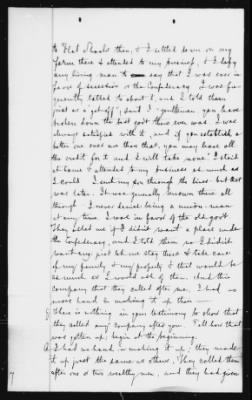 to Flat Shoals then, & I settled down on my
farm there & attended to my business, & I defy
any living man to say that I was ever in
favor of secession or the Confederacy. I was fre-
quently talked to about it, and I told them
just as a "get-off", said I "gentlemen you have
broken down the best govt there ever was. I was
always satisfied with it, and if you establish a
better one over me than that, you may have all
the credit for it and I will take none." I staid
at home & attended to my business as much as
I could. I sent my son through the lines but that
was later. It was generally known there all
through. I never denied being a union-man
at any time. I was in favor of the old govt.
They asked me if I didn't want a place under
the Confederacy, and I told them no I didn't
want any; just let me stay there & take care
of my family & my property & that would be
as much as I would ask of them. And this
company that they called after me, I had no
more hand in making it up than —
Q. There is nothing in your testimony to show that
they called any company after you. Tell how that
was gotten up; begin at the beginning.
A. I had no hand in making it up; they made
it up just the same as others. They called them
after one or two wealthy men, and they had given